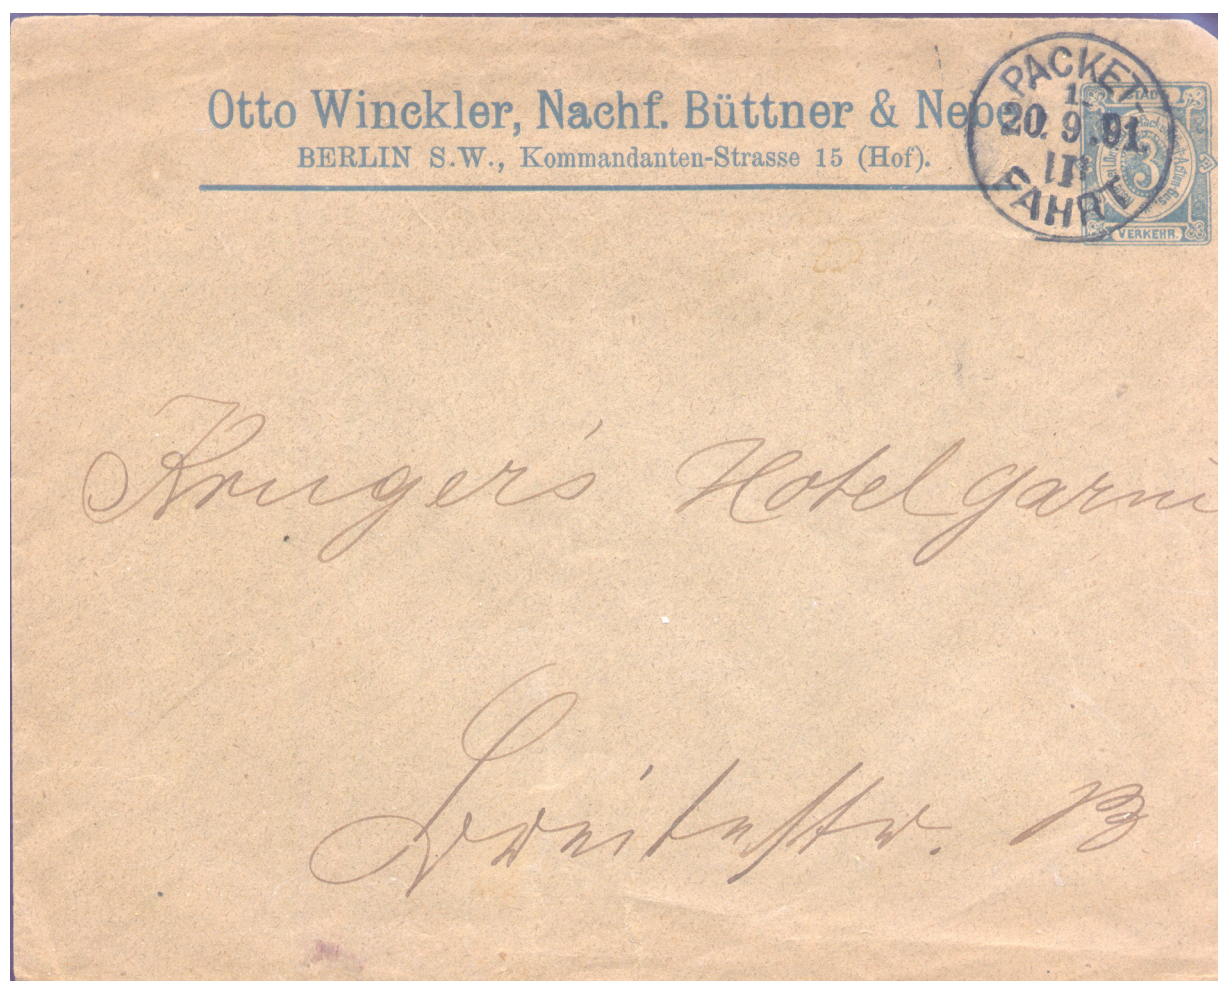 Otto Winckler, Nachf. Büttner &
BERLIN S.W., Kommandanten-Strasse 15 (Hof).
PACKET-
20. 9. 91.
FAHRT
3
VERKEHR.
Kruger's Hotel garni
Breitestr. 13